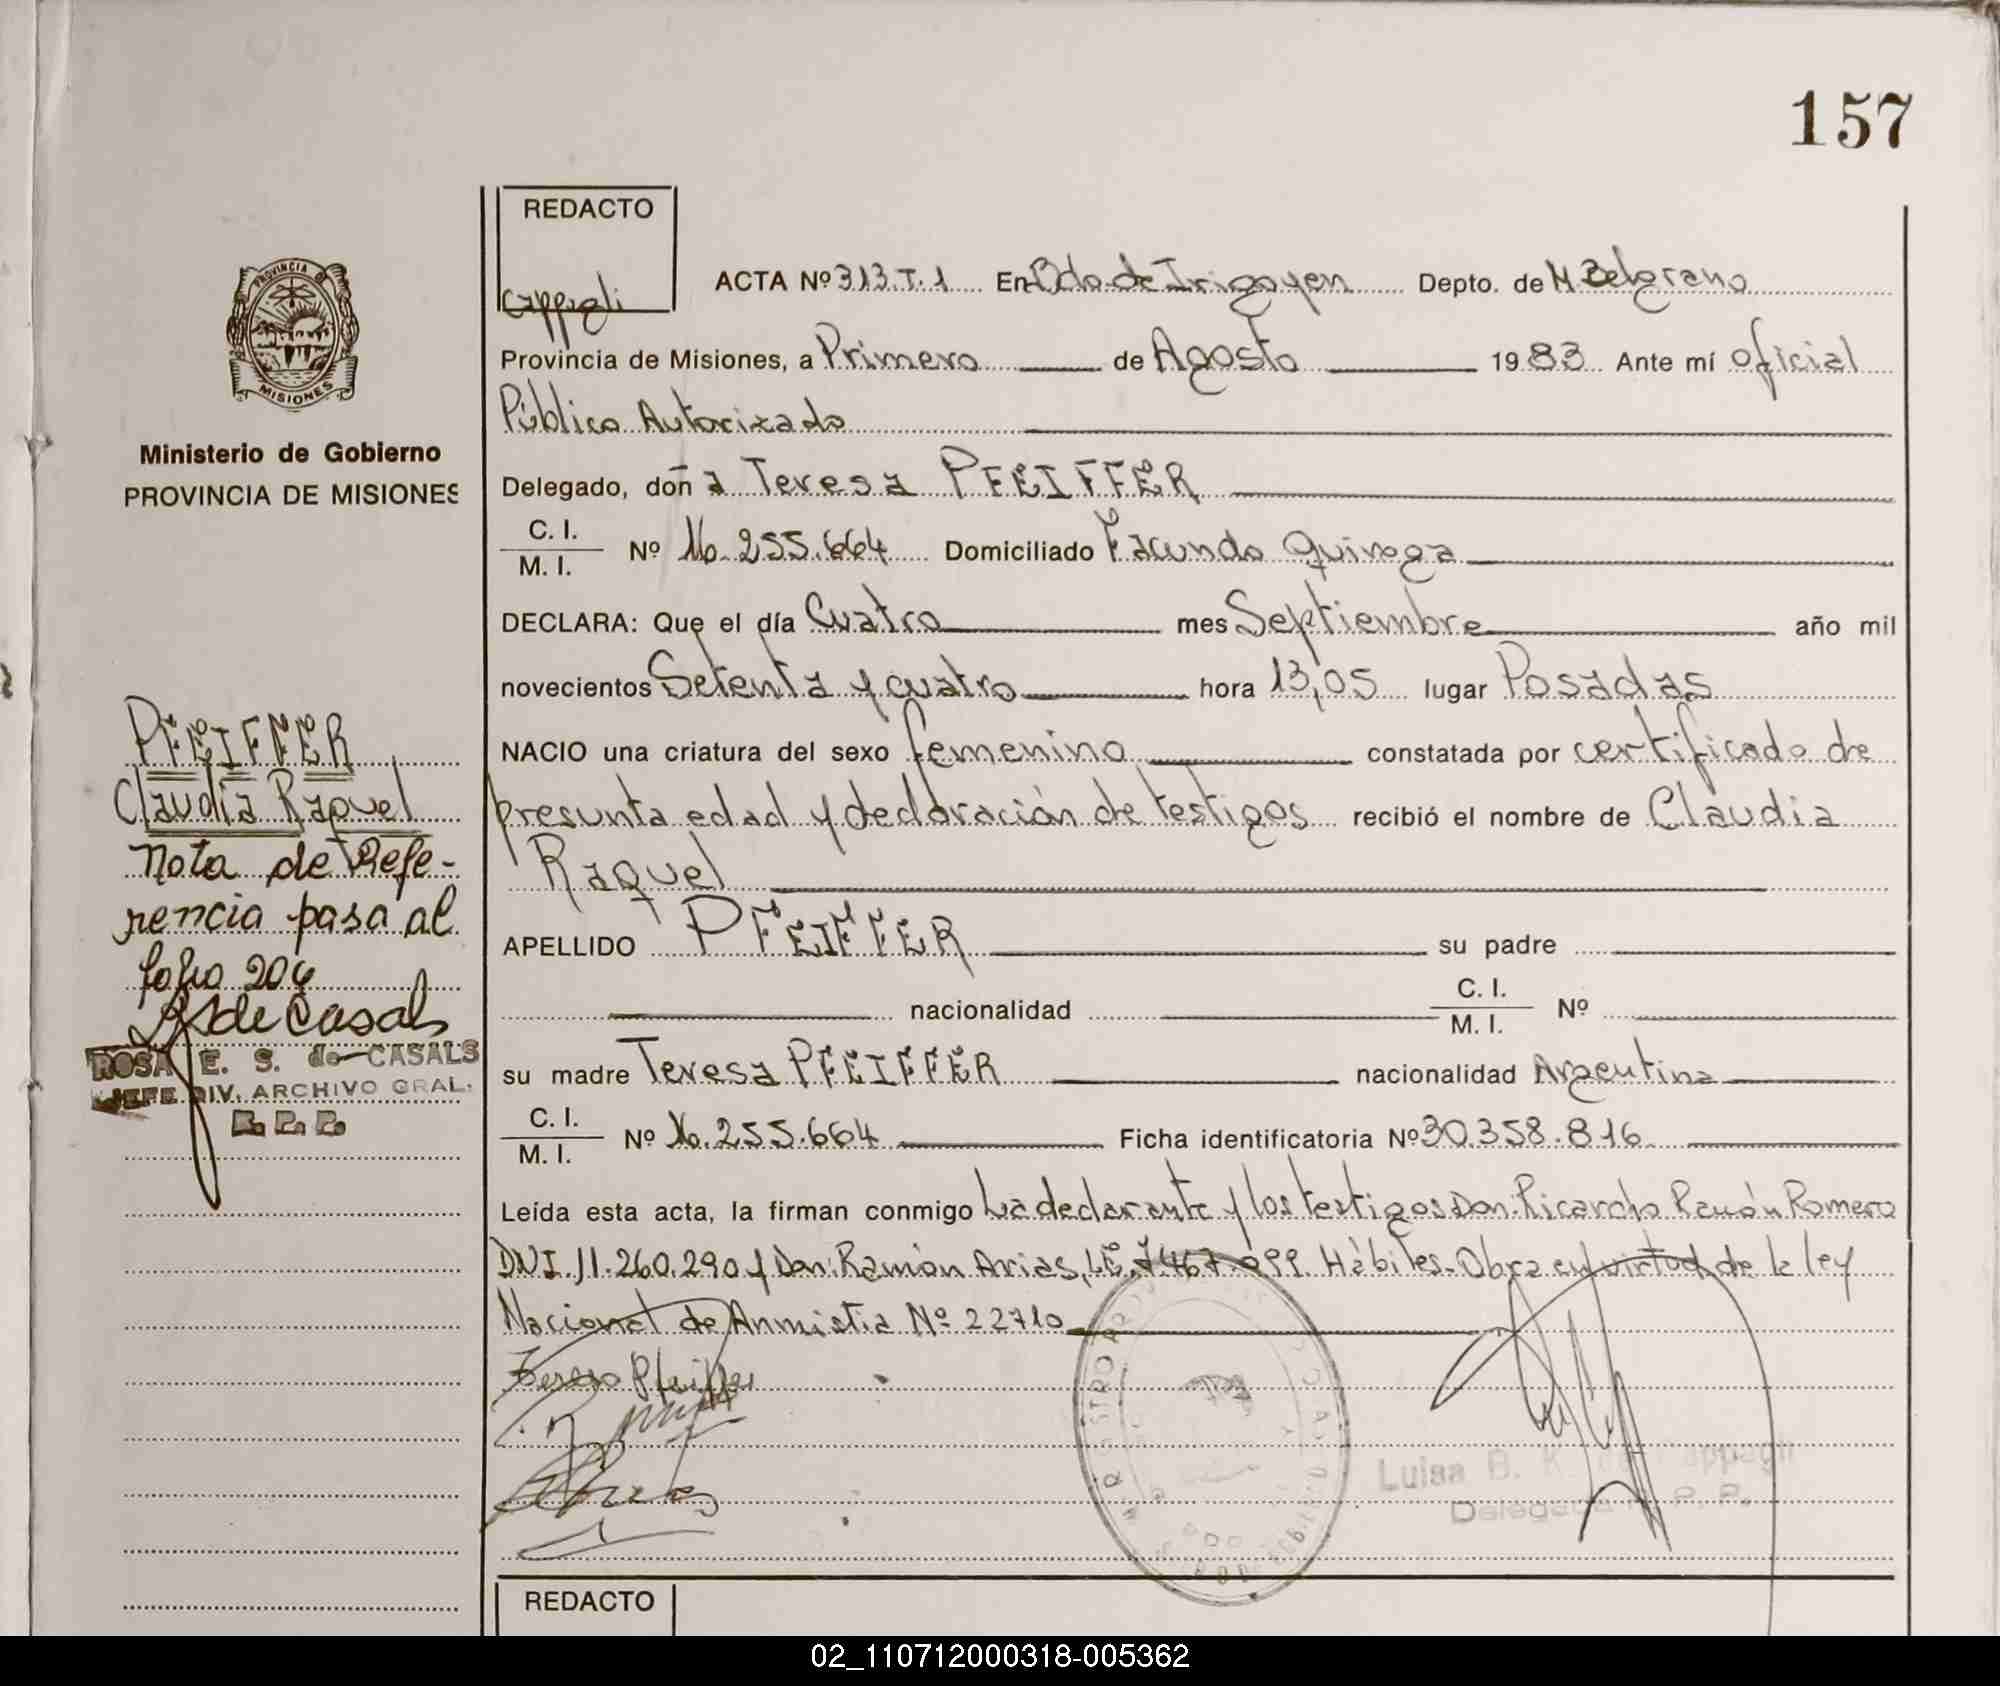 157
REDACTO
Cappagli
ACTA Nº 313.T.1 En Bdo de Irigoyen Depto. de M Belgrano
Provincia de Misiones, a Primero de Agosto 1983 Ante mí oficial
Público Autorizado
Delegado, doña Teresa PFEIFFER
C. I.
M. I. Nº 16.255.664 Domiciliado Facundo Quiroga
DECLARA: Que el día Cuatro mes Septiembre año mil
novecientos Setenta y cuatro hora 13,05 lugar Posadas
NACIO una criatura del sexo femenino constatada por certificado de
presunta edad y declaración de testigos recibió el nombre de Claudia
Raquel
APELLIDO PFEIFFER su padre
nacionalidad C. I.
M. I. Nº
su madre Teresa PFEIFFER nacionalidad Argentina
C. I.
M. I. Nº 16.255.664 Ficha identificatoria Nº 30.358.816
Leída esta acta, la firman conmigo La declarante y los testigos Don: Ricardo Ramón Romero
DNI. 11.260.290 y Don: Ramón Arias, LE, 7.467.099. Hábiles. Obra en virtud de la ley
Nacional de Anmistia Nº 22710
Teresa Pfeiffer
Luisa B. K. de Cappagli
Delegada R. P. P.
REDACTO
PROVINCIA D
MISIONES
Ministerio de Gobierno
PROVINCIA DE MISIONES
PFEIFFER
Claudia Raquel
Nota de Refe-
rencia pasa al
folio 204
de Casals
ROSA E. S. de CASALS
JEFE DIV. ARCHIVO GRAL.
R. P. P.
02_110712000318-005362